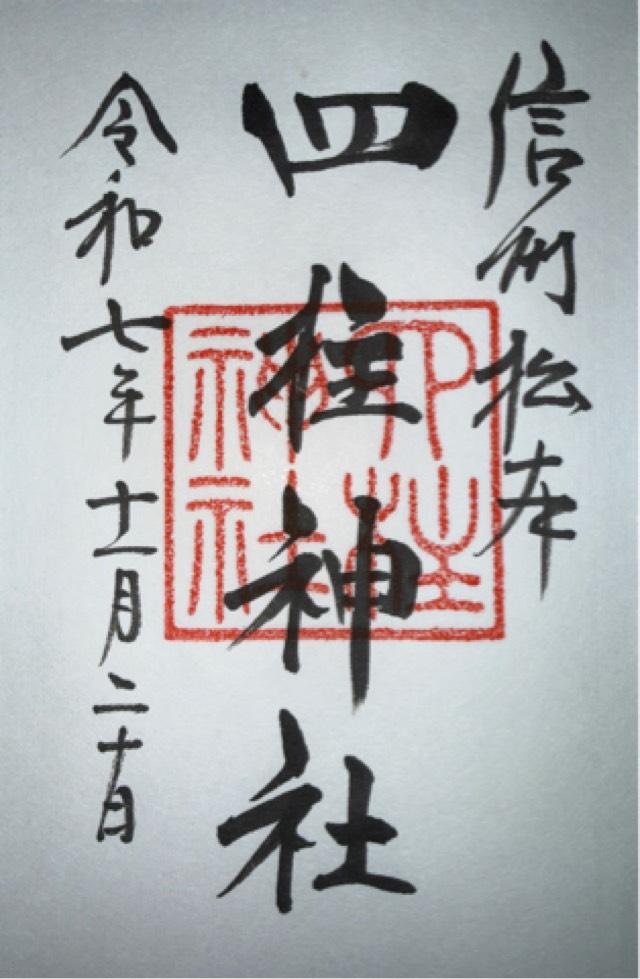 信州松本
四柱神社
四柱神社
令和七年十一月二十日